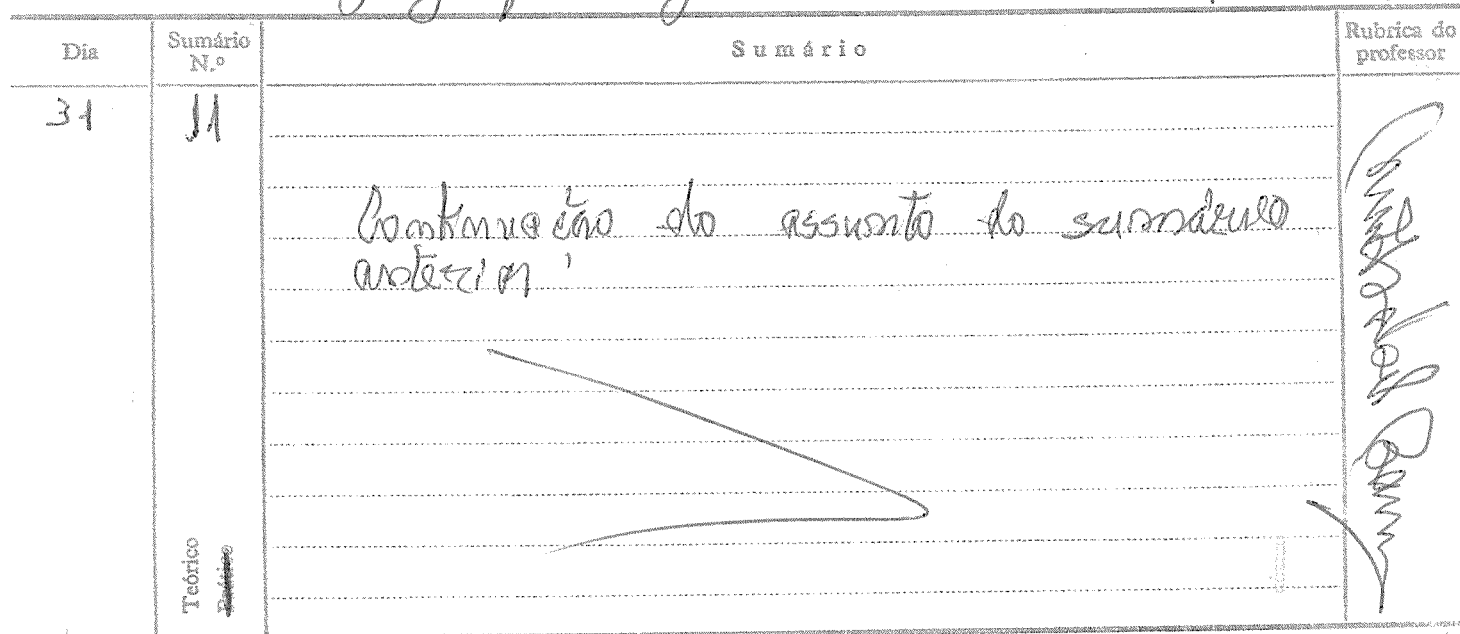 Dia
Sumário
N.º
Sumário
Rubrica do
professor
31
11
Continuação do assunto do sumário
anterior
Teórico
Prático